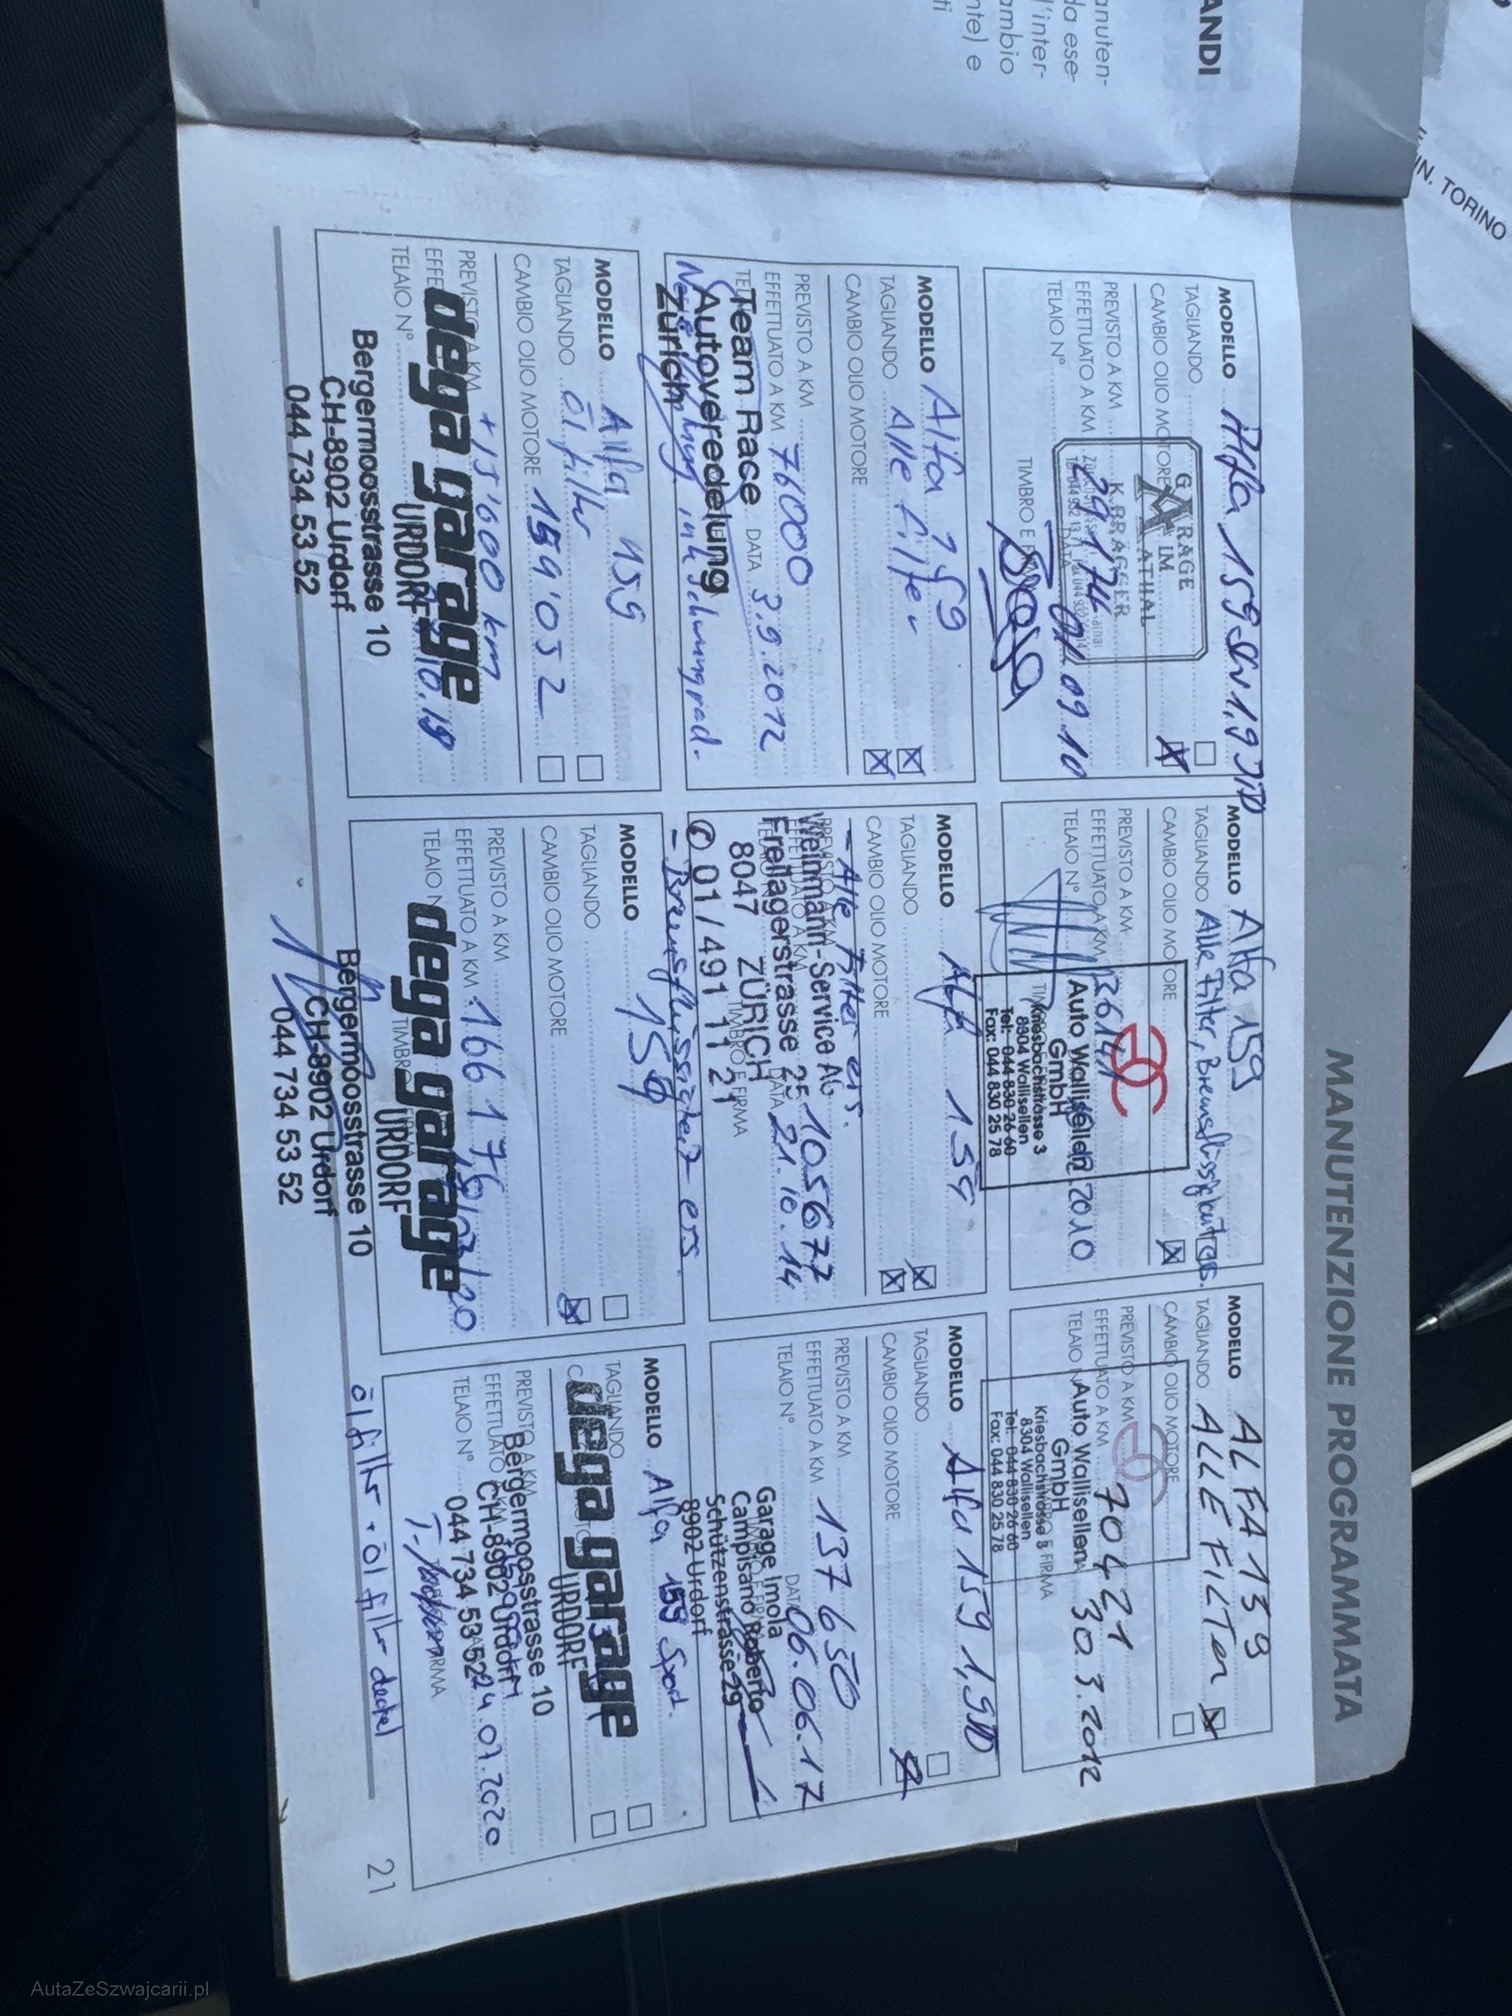 ANDI
anuten-
da ese-
l'inter-
ambio
nte) e
ti
IN. TORINO
MANUTENZIONE PROGRAMMATA
MODELLO Alfa 159 SW 1,9 JTD
TAGLIANDO
CAMBIO OLIO MOTORE
PREVISTO A KM
EFFETTUATO A KM 29174 09.10
TELAIO N° TIMBRO E
GARAGE
IM
AATHAL
K. BRAGGER
MODELLO Alfa 159
TAGLIANDO Alle Filter, Bremsflüssigkeit
CAMBIO OLIO MOTORE
PREVISTO A KM
EFFETTUATO A KM 2010
TELAIO N°
Auto Wallisellen
GmbH
Kriesbachstrasse 3
8304 Wallisellen
Tel: 044 830 26 60
Fax: 044 830 25 78
MODELLO ALFA 159
TAGLIANDO ALLE FILTER
CAMBIO OLIO MOTORE
PREVISTO A KM
EFFETTUATO A KM 70421 30.3.2012
TELAIO FIRMA
Auto Wallisellen
GmbH
Kriesbachstrasse 3
8304 Wallisellen
Tel: 044 830 26 60
Fax: 044 830 25 78
MODELLO Alfa 159
TAGLIANDO Alle Filter
CAMBIO OLIO MOTORE
PREVISTO A KM
EFFETTUATO A KM 76000 DATA 3.9.2012
Team Race
Autoveredelung
Zürich
MODELLO Alfa 159
TAGLIANDO
CAMBIO OLIO MOTORE
- Alle Filter ers.
105677
DATA 21.10.14
TIMBRO E FIRMA
Weinmann-Service AG
Freilagerstrasse 25
8047 ZÜRICH
✆ 01/491 11 21
- Bremsflüssigkeit ers.
MODELLO Alfa 159 1,9JTD
TAGLIANDO
CAMBIO OLIO MOTORE
PREVISTO A KM
EFFETTUATO A KM 137650
TELAIO N° DATA 06.06.17
Garage Imola
Campisano Roberto
Schützenstrasse 29
8902 Urdorf
MODELLO Alfa 159
TAGLIANDO Ölfilter
CAMBIO OLIO MOTORE 159'052
PREVISTO A KM +15'000 km
EFFE 10.19
TELAIO N°
dega garage
URDORF
Bergermoosstrasse 10
CH-8902 Urdorf
044 734 53 52
MODELLO 159
TAGLIANDO
CAMBIO OLIO MOTORE
PREVISTO A KM
EFFETTUATO A KM 166176
TELAIO N TIMBR
dega garage
URDORF
Bergermoosstrasse 10
CH-8902 Urdorf
044 734 53 52
MODELLO Alfa 159 Sport.
TAGLIANDO
PREVISTO A KM
EFFETTUATO
TELAIO N° 24.07.2020
dega garage
URDORF
Bergermoosstrasse 10
CH-8902 Urdorf
044 734 53 52
ölfilter + ölfilter deckel
21
AutaZeSzwajcarii.pl